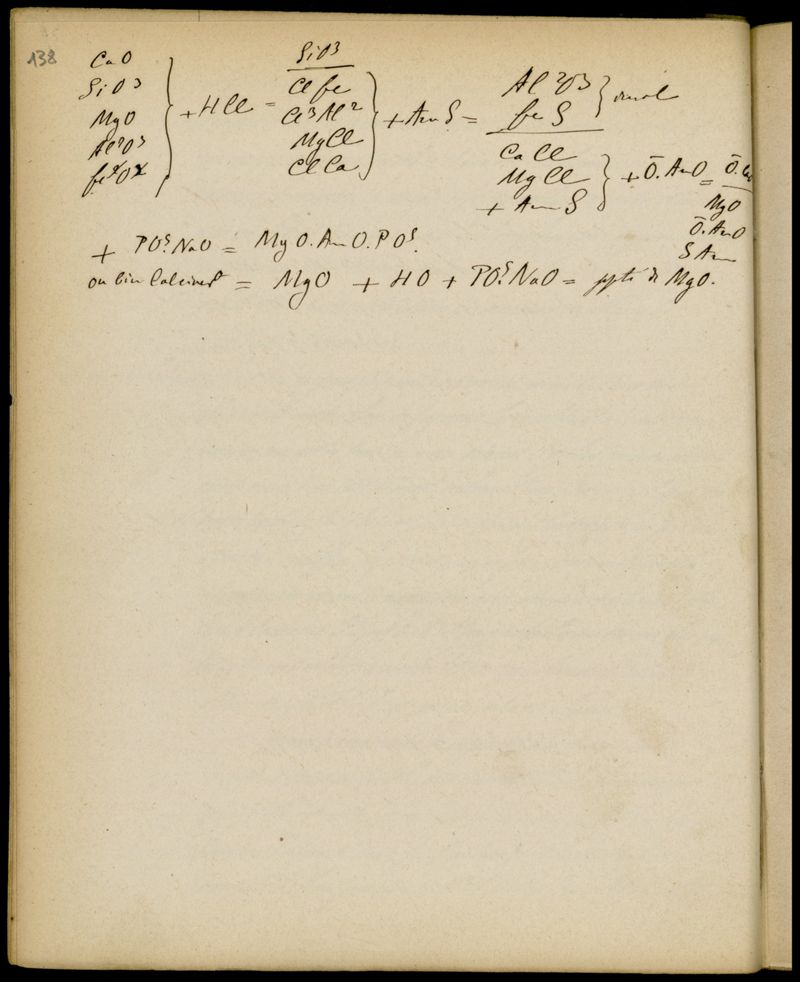 138
CaO
SiO3
MgO
Al2O3
fexOx
} + HCl =
SiO3
Clfe
Cl3Al2
MgCl
ClCa
} + AmS =
Al2O3
feS
}
CaCl
MgCl
+ AmS
} + Ō.AmO =
Ō.Ca
MgO
Ō.AmO
SAm
+ PO5.NaO = MgO.AmO.PO5.
ou bien Calcined = MgO + HO + PO5.NaO = ppté de MgO.